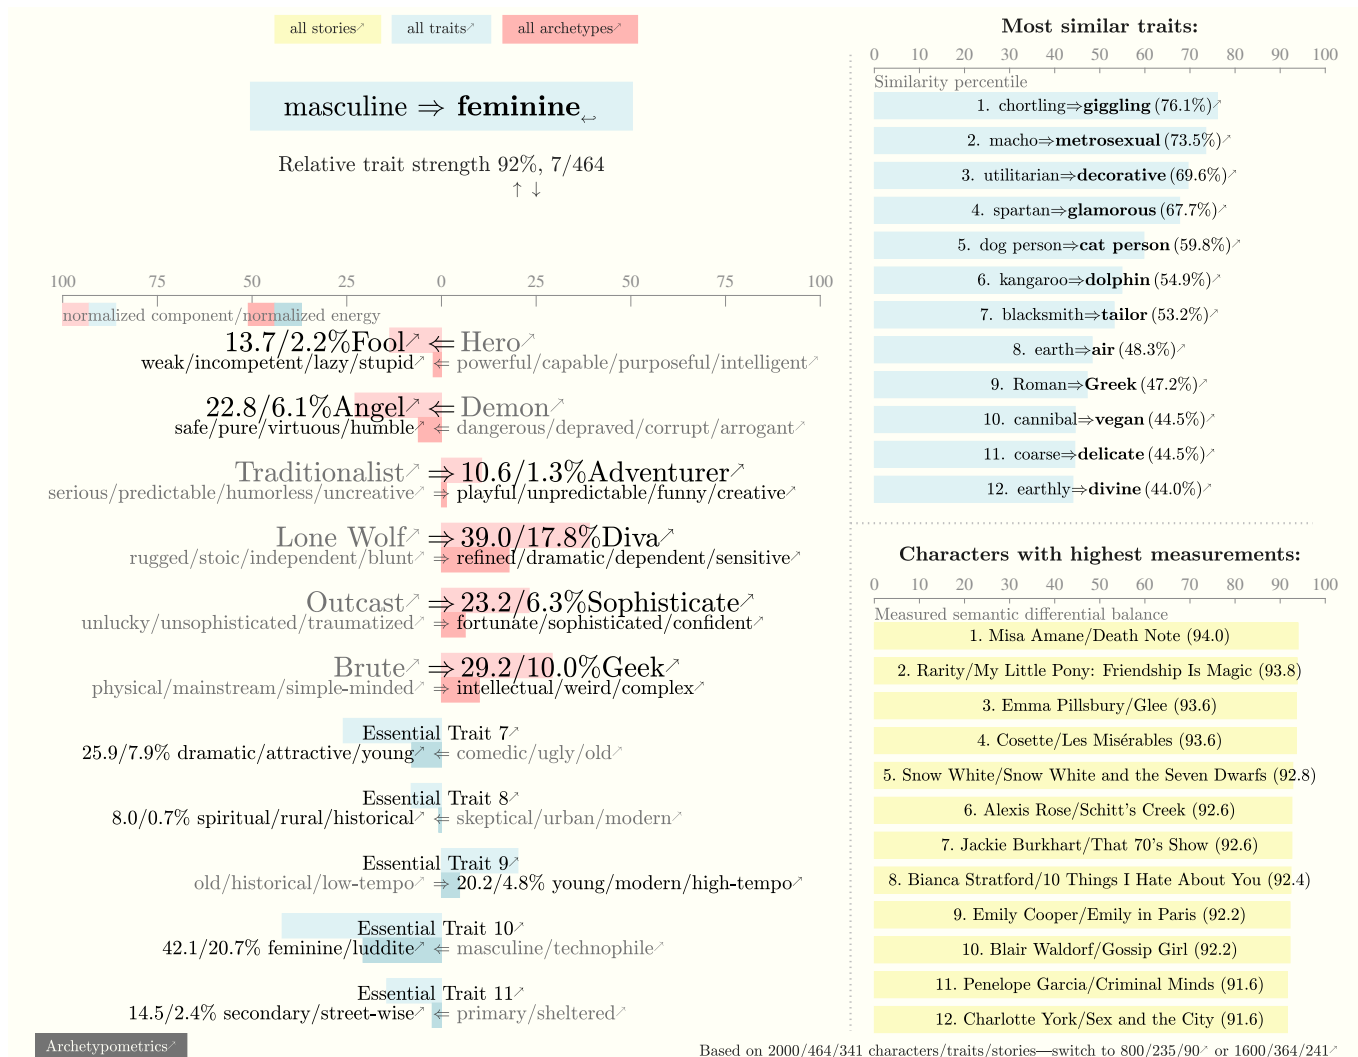 all stories↗
all traits↗
all archetypes↗
masculine ⇒ feminine↩
Relative trait strength 92%, 7/464
↑ ↓
100 75 50 25 0 25 50 75 100
normalized component/normalized energy
13.7/2.2%Fool↗ ⇐ Hero↗
weak/incompetent/lazy/stupid↗ ⇐ powerful/capable/purposeful/intelligent↗
22.8/6.1%Angel↗ ⇐ Demon↗
safe/pure/virtuous/humble↗ ⇐ dangerous/depraved/corrupt/arrogant↗
Traditionalist↗ ⇒ 10.6/1.3%Adventurer↗
serious/predictable/humorless/uncreative↗ ⇒ playful/unpredictable/funny/creative↗
Lone Wolf↗ ⇒ 39.0/17.8%Diva↗
rugged/stoic/independent/blunt↗ ⇒ refined/dramatic/dependent/sensitive↗
Outcast↗ ⇒ 23.2/6.3%Sophisticate↗
unlucky/unsophisticated/traumatized↗ ⇒ fortunate/sophisticated/confident↗
Brute↗ ⇒ 29.2/10.0%Geek↗
physical/mainstream/simple-minded↗ ⇒ intellectual/weird/complex↗
Essential Trait 7↗
25.9/7.9% dramatic/attractive/young↗ ⇐ comedic/ugly/old↗
Essential Trait 8↗
8.0/0.7% spiritual/rural/historical↗ ⇐ skeptical/urban/modern↗
Essential Trait 9↗
old/historical/low-tempo↗ ⇒ 20.2/4.8% young/modern/high-tempo↗
Essential Trait 10↗
42.1/20.7% feminine/luddite↗ ⇐ masculine/technophile↗
Essential Trait 11↗
14.5/2.4% secondary/street-wise↗ ⇐ primary/sheltered↗
Archetypometrics↗
Most similar traits:
0 10 20 30 40 50 60 70 80 90 100
Similarity percentile
1. chortling⇒giggling (76.1%)↗
2. macho⇒metrosexual (73.5%)↗
3. utilitarian⇒decorative (69.6%)↗
4. spartan⇒glamorous (67.7%)↗
5. dog person⇒cat person (59.8%)↗
6. kangaroo⇒dolphin (54.9%)↗
7. blacksmith⇒tailor (53.2%)↗
8. earth⇒air (48.3%)↗
9. Roman⇒Greek (47.2%)↗
10. cannibal⇒vegan (44.5%)↗
11. coarse⇒delicate (44.5%)↗
12. earthly⇒divine (44.0%)↗
Characters with highest measurements:
0 10 20 30 40 50 60 70 80 90 100
Measured semantic differential balance
1. Misa Amane/Death Note (94.0)
2. Rarity/My Little Pony: Friendship Is Magic (93.8)
3. Emma Pillsbury/Glee (93.6)
4. Cosette/Les Misérables (93.6)
5. Snow White/Snow White and the Seven Dwarfs (92.8)
6. Alexis Rose/Schitt's Creek (92.6)
7. Jackie Burkhart/That 70's Show (92.6)
8. Bianca Stratford/10 Things I Hate About You (92.4)
9. Emily Cooper/Emily in Paris (92.2)
10. Blair Waldorf/Gossip Girl (92.2)
11. Penelope Garcia/Criminal Minds (91.6)
12. Charlotte York/Sex and the City (91.6)
Based on 2000/464/341 characters/traits/stories—switch to 800/235/90↗ or 1600/364/241↗